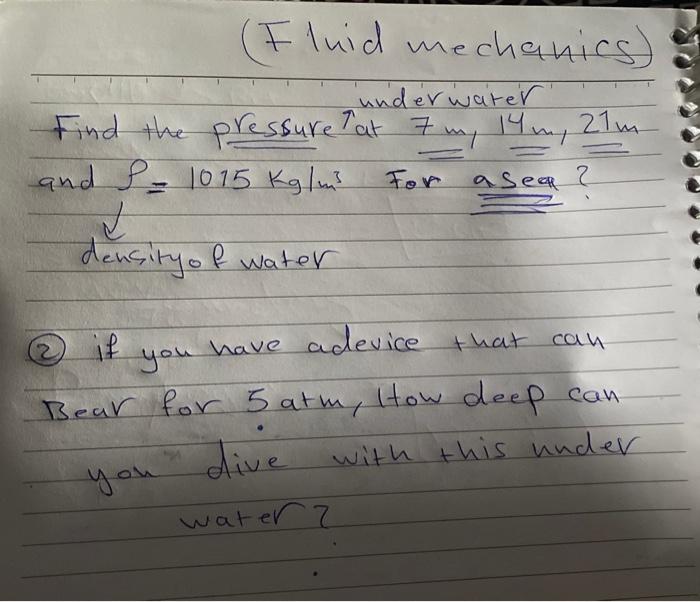 (Fluid mechanics)
underwater
Find the pressure ↑ at 7m, 14m, 21m
and ρ = 1015 Kg/m³ For a sea ?
↓
density of water
② if you have a device that can
Bear for 5 atm, How deep can
you dive with this under
water?